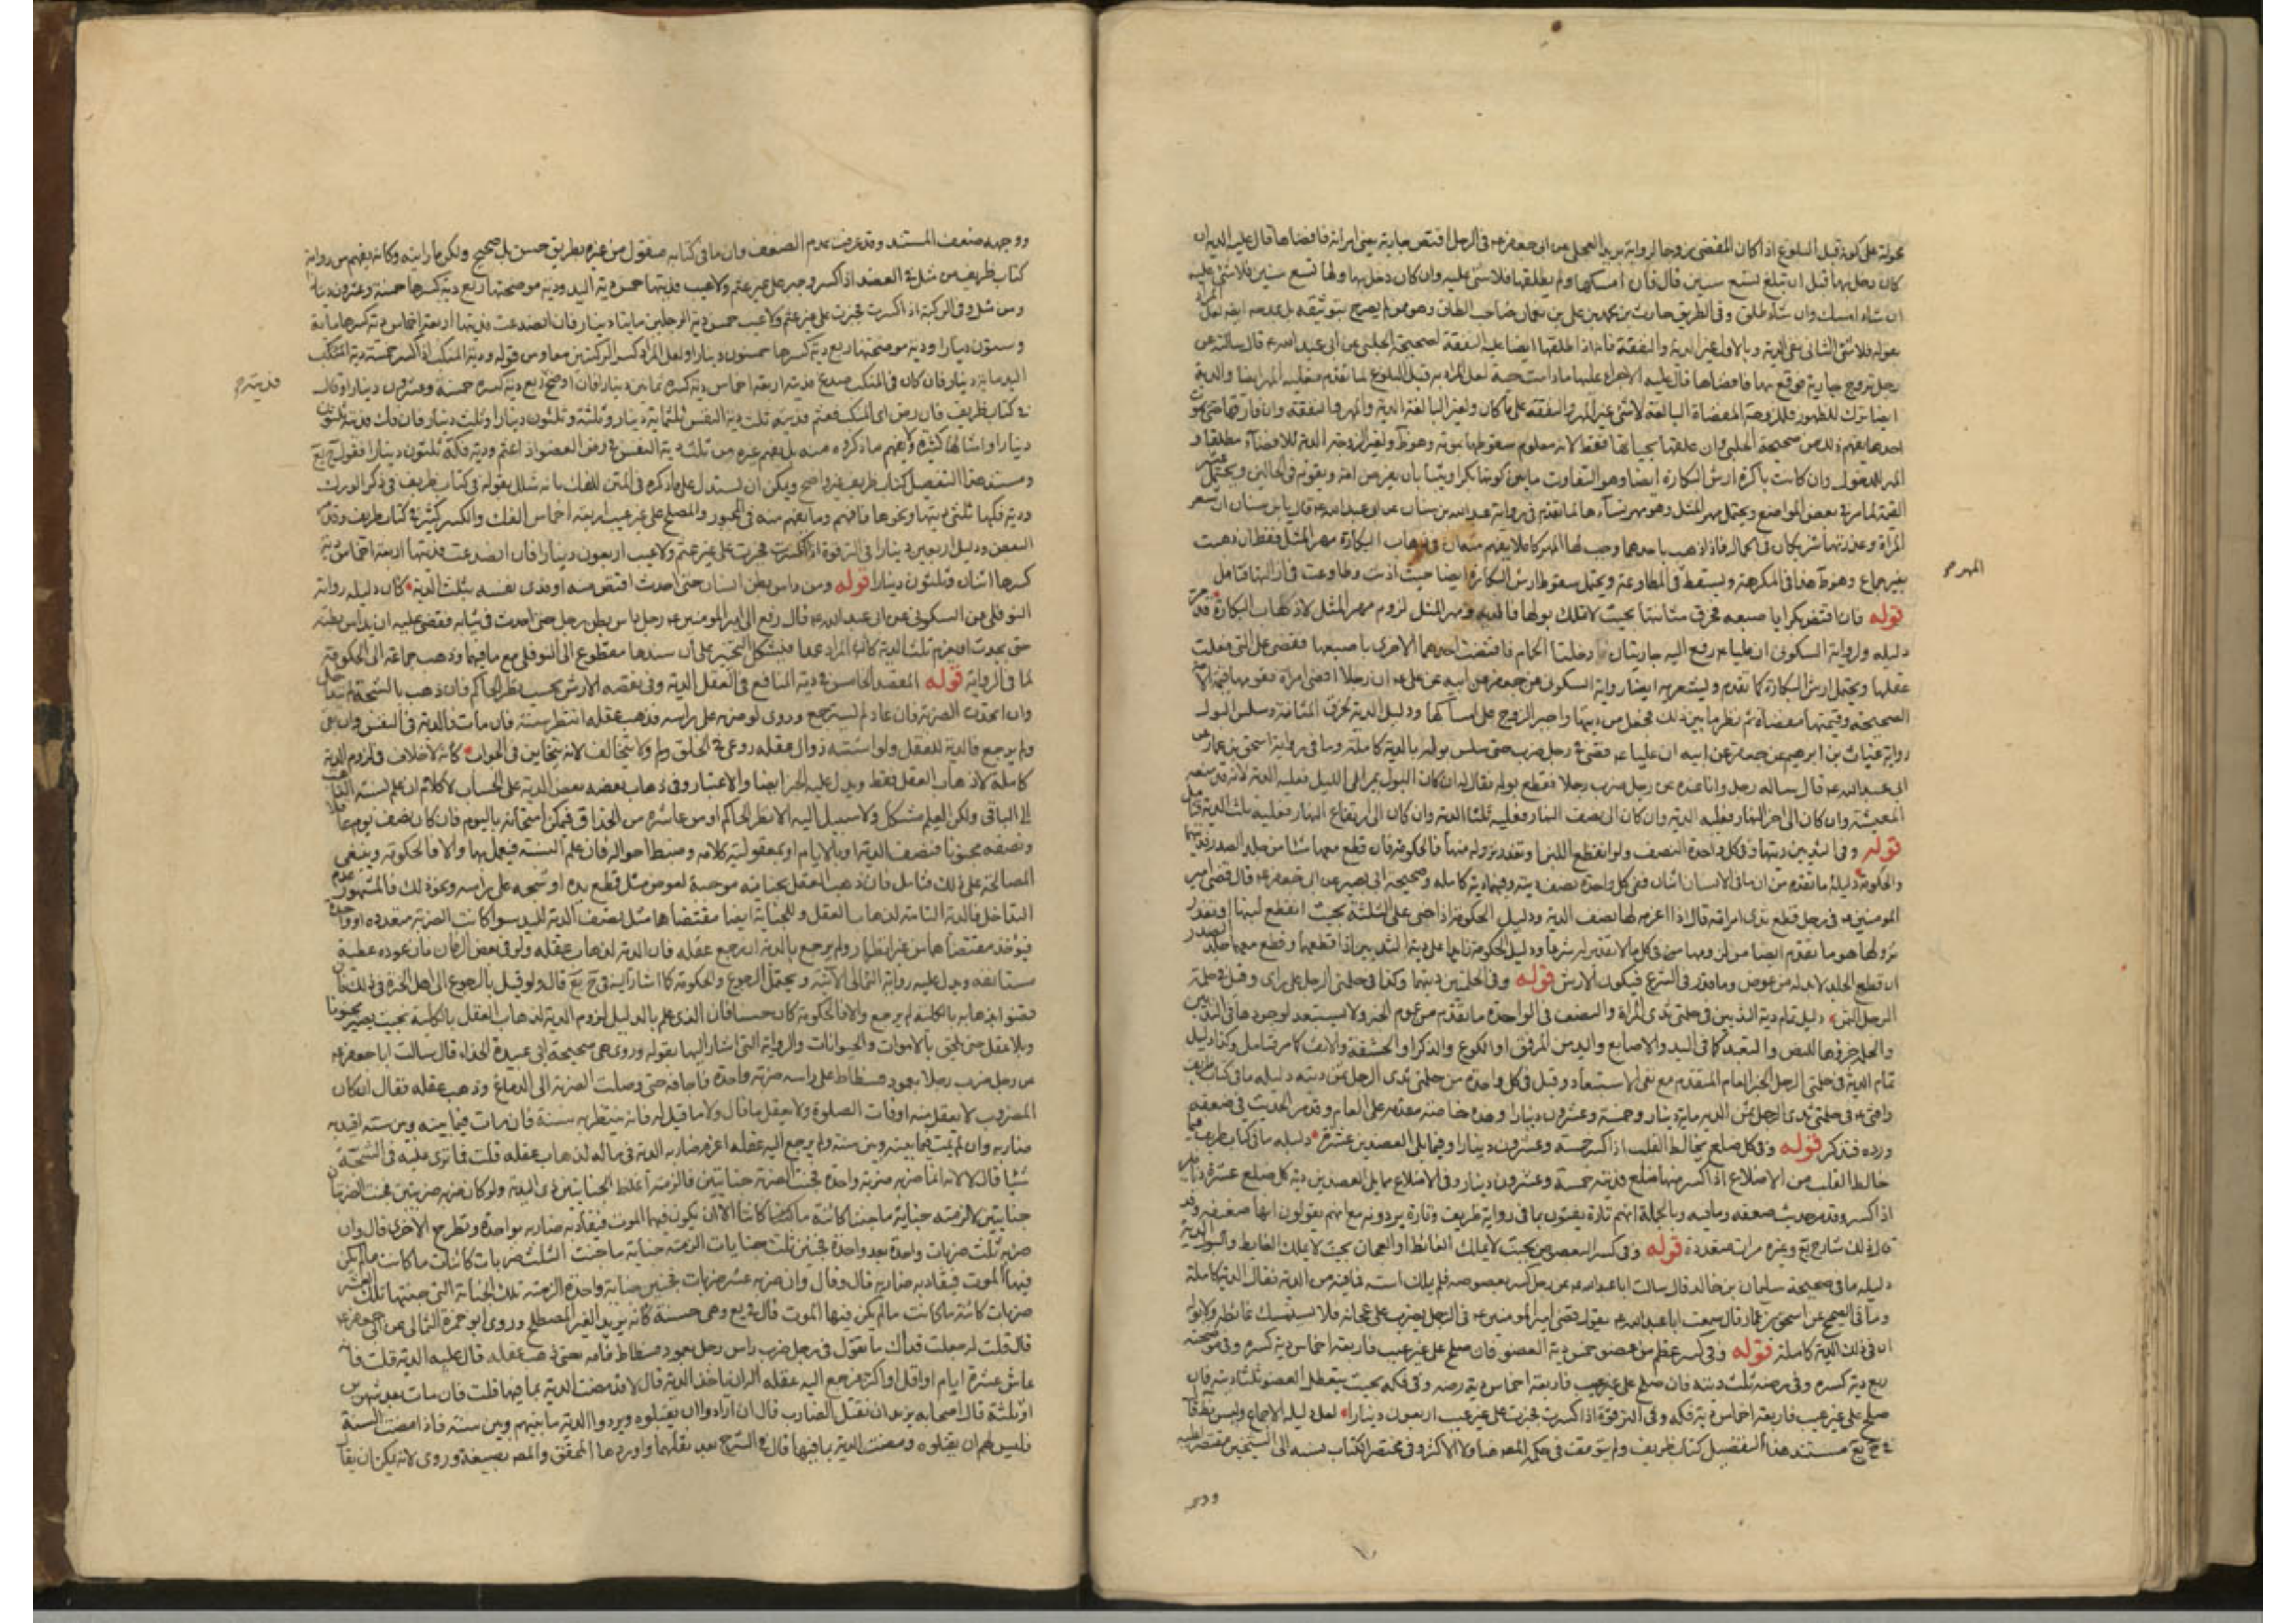 محمولة على كونه قبل البلوغ اذا كان المفضى زوجا لرواية بريد العجلي عن ابى جعفر ع فى الرجل افتض جارية يعنى امراته فافضاها قال عليه الدية ان
كان دخل بها قبل ان تبلغ تسع سنين قال فان امسكها ولم يطلقها فلا شئ عليه وان كان دخل بها ولها تسع سنين فلا شئ عليه
ان شاء امسك وان شاء طلق وفى الطريق حارث بن محمد بن على بن نعمان صاحب الطاق وهو ممن لم يصرح بتوثيقه بل
بقوله فلا شئ الثانى نفى الدية وبالاول غير الدية والنفقة فانه اذا طلقها ايضا عليه النفقة لصحيحة الحلبى عن ابى عبد الله ع قال سالته عن
رجل تزوج جارية فوقع بها فافضاها قال عليه الاجراء عليها مادامت حية لعل المراد به قبل البلوغ لما تقدم فعليه المهر ايضا والدية
ايضا ترك للظهور فللزوجة المفضاة البالغة لا شئ غير المهر والنفقة على ما كان ولغير البالغة الدية والمهر والنفقة وان فارقها حتى يموت
احدهما
المهر للدخول وان كانت باكرة ارش البكارة ايضا وهو التفاوت مابين كونها بكرا وثيبا بان يفرض امة ويقوم فى الحالين ويحتمل عشر
القيمة لما مر فى بعض المواضع ويحتمل مهر المثل وهو مهر نساءها لما تقدم فى رواية عبد الله بن سنان عن ابى عبد الله ع قال يابن سنان ان شعر
المراة وعذرتها شريكان فى الجمال فاذا ذهب باحدهما وجب لها المهر كاملا
بغير جماع وهو ظ هذا فى المكرهة ويسقط فى المطاوعة ويحتمل سقوط ارش البكارة ايضا حيث اذنت وطاوعت فى ازالتها فتامل
المهر صح
قوله فان افتض بكرا باصبعه فخرق مثانتها بحيث لا تملك بولها فالدية ومهر المثل لزوم مهر المثل لاذهاب البكارة قد مر
دليله ولرواية السكونى ان عليا ع رفع اليه جاريتان دخلتا الحمام فافتضت احدهما الاخرى باصبعها فقضى على التى فعلت
عقلها ويحتمل ارش البكارة كما تقدم ويشعر به ايضا رواية السكونى عن جعفر عن ابيه عن على ع ان رجلا افضى امراة فقومها قيمة الامة
الصحيحة وقيمتها مفضاة ثم نظر ما بين ذلك فجعل من ديتها واجبر الزوج على امساكها ودليل الدية لخرق المثانة وسلس البول
رواية غياث بن ابراهيم عن جعفر عن ابيه ان عليا ع قضى فى رجل ضرب حتى سلس بوله بالدية كاملة وما فى رواية اسحق بن عمار عن
ابى عبد الله ع قال ساله رجل وانا عنده عن رجل ضرب رجلا فقطع بوله فقال له ان كان البول يمر الى الليل فعليه الدية لانه قد منعه
المعيشة وان كان الى اخر النهار فعليه الدية وان كان الى نصف النهار فعليه ثلثا الدية وان كان الى ارتفاع النهار فعليه ثلث الدية
قوله وفى الثديين ديتها وفى كل واحدة النصف ولو انقطع اللبن او تعذر نزوله منهما فالحكومة فان قطع معهما شيئا من جلد الصدر فديتهما
والحكومة دليله ما تقدم من ان ما فى الانسان اثنان ففى كل واحدة نصف ديته وفيهما دية كاملة وصحيحة ابى بصير عن ابى جعفر ع قال قضى امير
المومنين ع فى رجل قطع ثدى امراته قال اذا اغرمه لها نصف الدية ودليل الحكومة
نزولها هو ما تقدم ايضا من لزومها
ان قطع الجلد لا بد له من عوض وما قدر فى الشرع فيكون الارش قوله وفى الحلمتين ديتهما وكذا فى حلمتى الرجل على راى وقيل فى حلمة
الرجل الثمن دليل تمام دية الثديين فى حلمتى ثدى المراة والنصف فى الواحدة ما تقدم من عموم الخبر ولا يستبعد لوجودها فى الثديين
والحلمة جزؤها للنص والتعبد كما فى اليد والاصابع واليد من المرفق او الكوع والذكر او الحشفة والانف كما مر فتامل وكذا دليل
تمام الدية فى حلمتى الرجل الخبر العام المتقدم مع نفى الاستبعاد وقيل فى كل واحدة من حلمتى ثدى الرجل ثمن ديته دليله ما فى كتاب ظريف
وافتى ع فى حلمتى ثدى الرجل ثمن الدية مائة دينار وخمسة وعشرون دينارا وهذه خاصة مقدمة على العام وقد مر الحديث فى ضعفه
ورده فتذكر قوله وفى كل ضلع يخالط القلب اذا كسر خمسة وعشرون دينارا وفيما يلى العضدين عشرة دليله ما فى كتاب ظريف فيما
خالط القلب من الاضلاع اذا كسر منها ضلع فديته خمسة وعشرون دينار وفى الاضلاع مما يلى العضدين دية كل ضلع عشرة دنانير
اذا كسر وقد مر حديث ضعفه وما فيه وبالجملة انهم تارة يفتون بما فى رواية ظريف وتارة يردونه مع انهم يقولون انها ضعيفة وقد
قال ذلك شارح يع وغيره مرات متعددة قوله وفى كسر البعصوص بحيث لا يملك الغائط او العجان بحيث لا يملك الغايط والبول الدية
دليله ما فى صحيحة سليمان بن خالد قال سالت ابا عبد الله ع عن رجل كسر بعصوصه فلم يملك استه فما فيه من الدية فقال الدية كاملة
وما فى الصحيح عن اسحق بن عمار قال سمعت ابا عبد الله ع يقول قضى امير المومنين ع فى الرجل يضرب على عجانه فلا يستمسك غائطه ولا بوله
ان فى ذلك الدية كاملة قوله وفى كسر عظم من عضو خمس دية العضو فان صلح على غير عيب فاربعة اخماس دية كسره وفى موضحته
ربع دية كسره وفى رضه ثلث ديته فان صلح على غير عيب فاربعة اخماس دية رضه وفى فكه بحيث يتعطل العضو ثلثا ديته فان
صلح على غير عيب فاربعة اخماس دية فكه وفى الترقوة اذا كسرت فجبرت على غير عيب اربعون دينارا لعل دليله الاجماع
فى ح يع مستند هذا التفصيل كتاب ظريف ولم يتوقف فى حكمه المصه هنا ولا الاكثر وفى مختصر الكتاب نسبه الى الشيخين مقتصرا عليه
ووجه
ووجهه ضعف المستند وقد عرفت عدم الضعف وان ما فى كتابه منقول من غيره بطريق حسن بل صحيح ولكن ما رايته وكانه يفهم من رواية
كتاب ظريف من مثل فى العضد اذا كسر وجبر على غير عثم ولا عيب فديتها خمس دية اليد ودية موضحتها ربع دية كسرها خمسة وعشرون دينارا
ومن مثل وفى الركبة اذا كسرت فجبرت على غير عثم ولا عيب خمس دية الرجلين مايتا دينار فان انصدعت فديتها اربعة اخماس دية كسرها مائة
وستون دينارا ودية موضحتها ربع دية كسرها خمسون دينارا ولعل المراد كسر الركبتين معا ومن قوله ودية المنكب اذا كسر خمس دية المنكب
اليد مائة دينار فان كان فى المنكب صدع فديته اربعة اخماس دية كسره ثمانين دينار فان اوضح فربع دية كسره خمسة وعشرون دينارا وقال
فديته صح
فى كتاب ظريف فان رض اى المنكب فعثم فديته ثلث دية النفس ثلثمائة دينار وثلثة وثلثون دينارا وثلث دينار فان فك فديته ثلثون
دينارا وامثالها كثيرة ولا يفهم ما ذكروه منه بل يفهم غيره من ثلث دية النفس فى رض العضو اذا عثم ودية فكه ثلثون دينارا فقول ح يع
ومستند هذا التفصيل كتاب ظريف غير واضح ويمكن ان يستدل على ما ذكره فى المتن للفك بانه شلل بقوله فى كتاب ظريف فى ذكر الورك
ودية فكها ثلثى ديتها ونحوها فافهم وما يفهم منه فى المجبور والمصلح على غير عيب اربعة اخماس الفك والكسر كثير فى كتاب ظريف
ودليل اربعين دينارا فى الترقوة اذا انكسرت فجبرت على غير عثم ولا عيب اربعون دينارا فان انصدعت فديتها اربعة اخماس دية
كسرها اثنان وثلثون دينارا قوله ومن داس بطن انسان حتى احدث اقتص منه او فدى نفسه بثلث الدية كان دليله رواية
النوفلى عن السكونى عن ابى عبد الله ع قال رفع الى امير المومنين ع رجل داس بطن رجل حتى احدث فى ثيابه فقضى عليه ان يداس بطنه
حتى يحدث او يغرم ثلث الدية كان المراد عمدا فيشكل التخيير على ان سندها مقطوع الى النوفلى مع ما فيهما وذهب جماعة الى الحكومة
لما فى الرواية قوله المقصد الخامس فى دية المنافع فى العقل الدية وفى نقصه الارش بحسب نظر الحاكم فان ذهب بالشجة لم يتداخل
وان اتحدت الضربة فان عاد لم يسترجع وروى لو ضربه على راسه فذهب عقله انتظر سنة فان مات فالدية فى النفس وان بقى
ولم يرجع فالدية للعقل ولو اشتبه زوال عقله روعى فى الخلوة ولا يحالف لانه يتجانن فى الجواب كانه لا خلاف فى لزوم الدية
كاملة لاذهاب العقل فقط ويدل عليه الخبر ايضا والاعتبار وفى ذهاب بعضه بعض الدية على الحساب لا كلام ان علم نسبة الذاهب
الى الباقى ولكن العلم مشكل ولا سبيل اليه الا نظر الحاكم او من عاشره من الحذاق فيمكن امتحانه باليوم فان كان نصف يوم عاقلا
ونصفه مجنونا فنصف الدية او بالايام او بمعقولية كلامه وضبط احواله فان علم النسبة فيعمل بها والا فالحكومة وينبغى
المصالحة على ذلك فتامل فان ذهب العقل بجناية موجبة لعوض مثل قطع يده او شجه على راسه ونحو ذلك فالمشهور عدم
التداخل فالدية التامة لذهاب العقل وللجناية ايضا مقتضاها مثل نصف الدية لليد سواء كانت الضربة متعددة او واحدة
فيؤخذ مقتضاها من غير انتظار ولم يرجع بالدية ان رجع عقله فان الدية لذهاب عقله ولو فى بعض الزمان فان عوده عطية
مستانفة ويدل عليه رواية الثمالى الاتية ويحتمل الرجوع والحكومة كما اشار اليه فى ح يع قال ولو قيل بالرجوع الى اهل الخبرة فى ذلك فان
قضوا بذهابه بالكلية لم يرجع والا فالحكومة كان حسنا فان الذى علم بالدليل لزوم الدية لذهاب العقل بالكلية بحيث يصير مجنونا
وبلا عقل حتى يلحق بالاموات والحيوانات والرواية التى اشار اليها بقوله وروى هى صحيحة ابى عبيدة الحذاء قال سالت ابا جعفر ع
عن رجل ضرب رجلا بعمود فسطاط على راسه ضربة واحدة فاجافه حتى وصلت الضربة الى الدماغ وذهب عقله فقال ان كان
المضروب لا يعقل منه اوقات الصلوة ولا يعقل ما قال ولا ما قيل له فانه ينتظر به سنة فان مات فيما بينه وبين سنة اقيد به
ضاربه وان لم يمت فيما بينه وبين سنة ولم يرجع اليه عقله اغرم ضاربه الدية فى ماله لذهاب عقله قلت فما ترى عليه فى الشجة
شيئا قال لا لانه انما ضربه ضربة واحدة فجنت الضربة جنايتين فالزمته اغلظ الجنايتين وهى الدية ولو كان ضربه ضربتين فجنت الضربتان
جنايتين لالزمته جناية ما جنتا كائنة ما كانتا الا ان يكون فيهما الموت فيقاد به ضاربه بواحدة وتطرح الاخرى قال وان
ضربه ثلث ضربات واحدة بعد واحدة فجنين ثلث جنايات الزمته جناية ما جنت الثلث ضربات كائنات ما كانت ما لم يكن
فيها الموت فيقاد به ضاربه قال وقال وان ضربه عشر ضربات فجنين جناية واحدة الزمته تلك الجناية التى جنتها تلك العشر
ضربات كائنة ما كانت ما لم يكن فيها الموت قال فى يع وهى حسنة كانه يريد الغير المصطلح وروى ابو حمزة الثمالى عن ابى جعفر ع
قال قلت له جعلت فداك ما تقول فى رجل ضرب راس رجل بعمود فسطاط فامه يعنى ذهب عقله قال عليه الدية قلت فانه
عاش عشرة ايام او اقل او اكثر فرجع اليه عقله اله ان ياخذ الدية قال لا قد مضت الدية بما فيها قلت فان مات بعد شهرين
او ثلثة قال اصحابه نريد ان نقتل الضارب قال ان ارادوا ان يقتلوه ويردوا الدية ما بينهم وبين سنة فاذا مضت السنة
فليس لهم ان يقتلوه ومضت الدية بما فيها قال فى الشرح بعد نقلهما واوردها المحقق والمصه بصيغة وروى لانه يمكن ان يقال